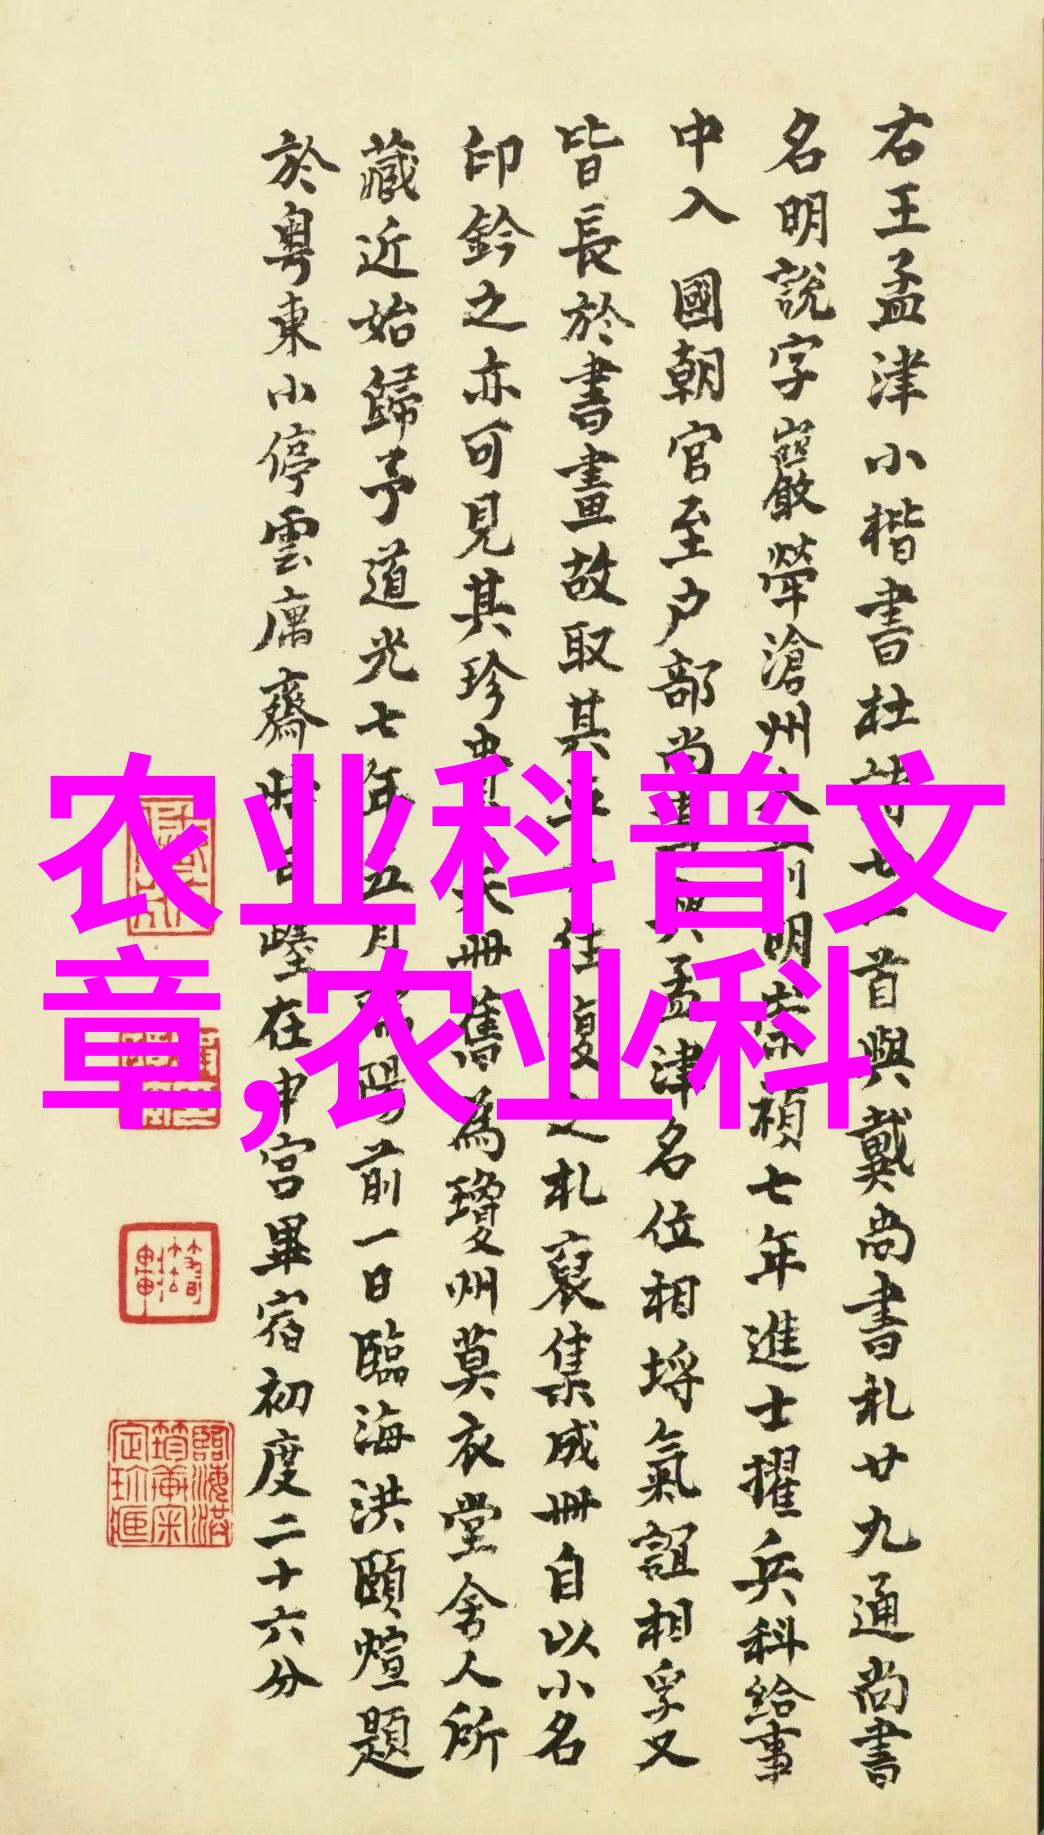 右王孟津小楷書杜詩七一首與戴尚書札廿九通尚書
名明說字巖犖滄州人前明崇禎七年進士擢兵科給事
中入 國朝官至户部尚書與孟津名位相埒氣誼相孚又
皆長於書畫故取其往復之札裒集成冊自以小名
印鈐之亦可見其珍冊舊為瓊州莫衣堂舍人所
藏近始歸予道光七年五月前一日臨海洪頤煊題
於粵東小停雲庽齋在申宫畢宿初度二十六分
农业科普文
章,农业科